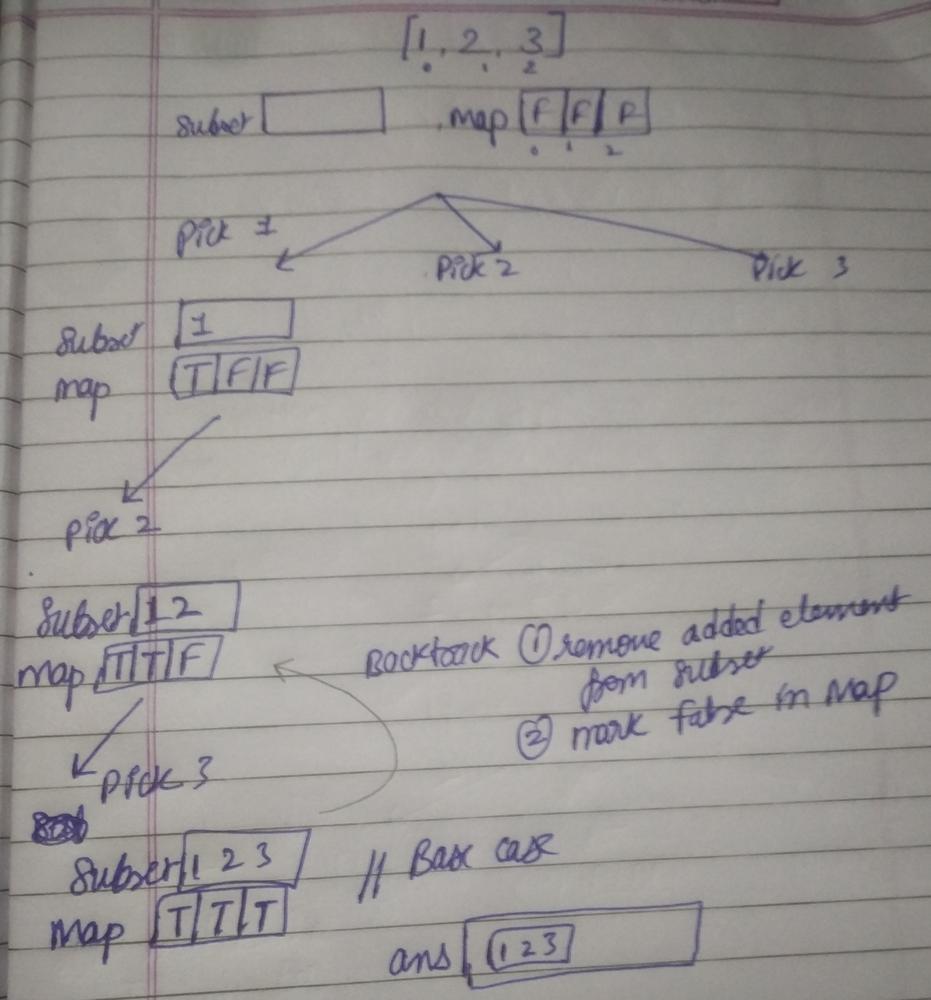 [1, 2, 3]
0 1 2
Subset map F F F
0 1 2
Pick 1
Pick 2 Pick 3
Subset 1
map T F F
Pick 2
Subset 1 2
map T T F
Backtrack ① remove added element
from subset
② mark false in map
Pick 3
Subset 1 2 3 // Base case
map T T T
ans 1 2 3